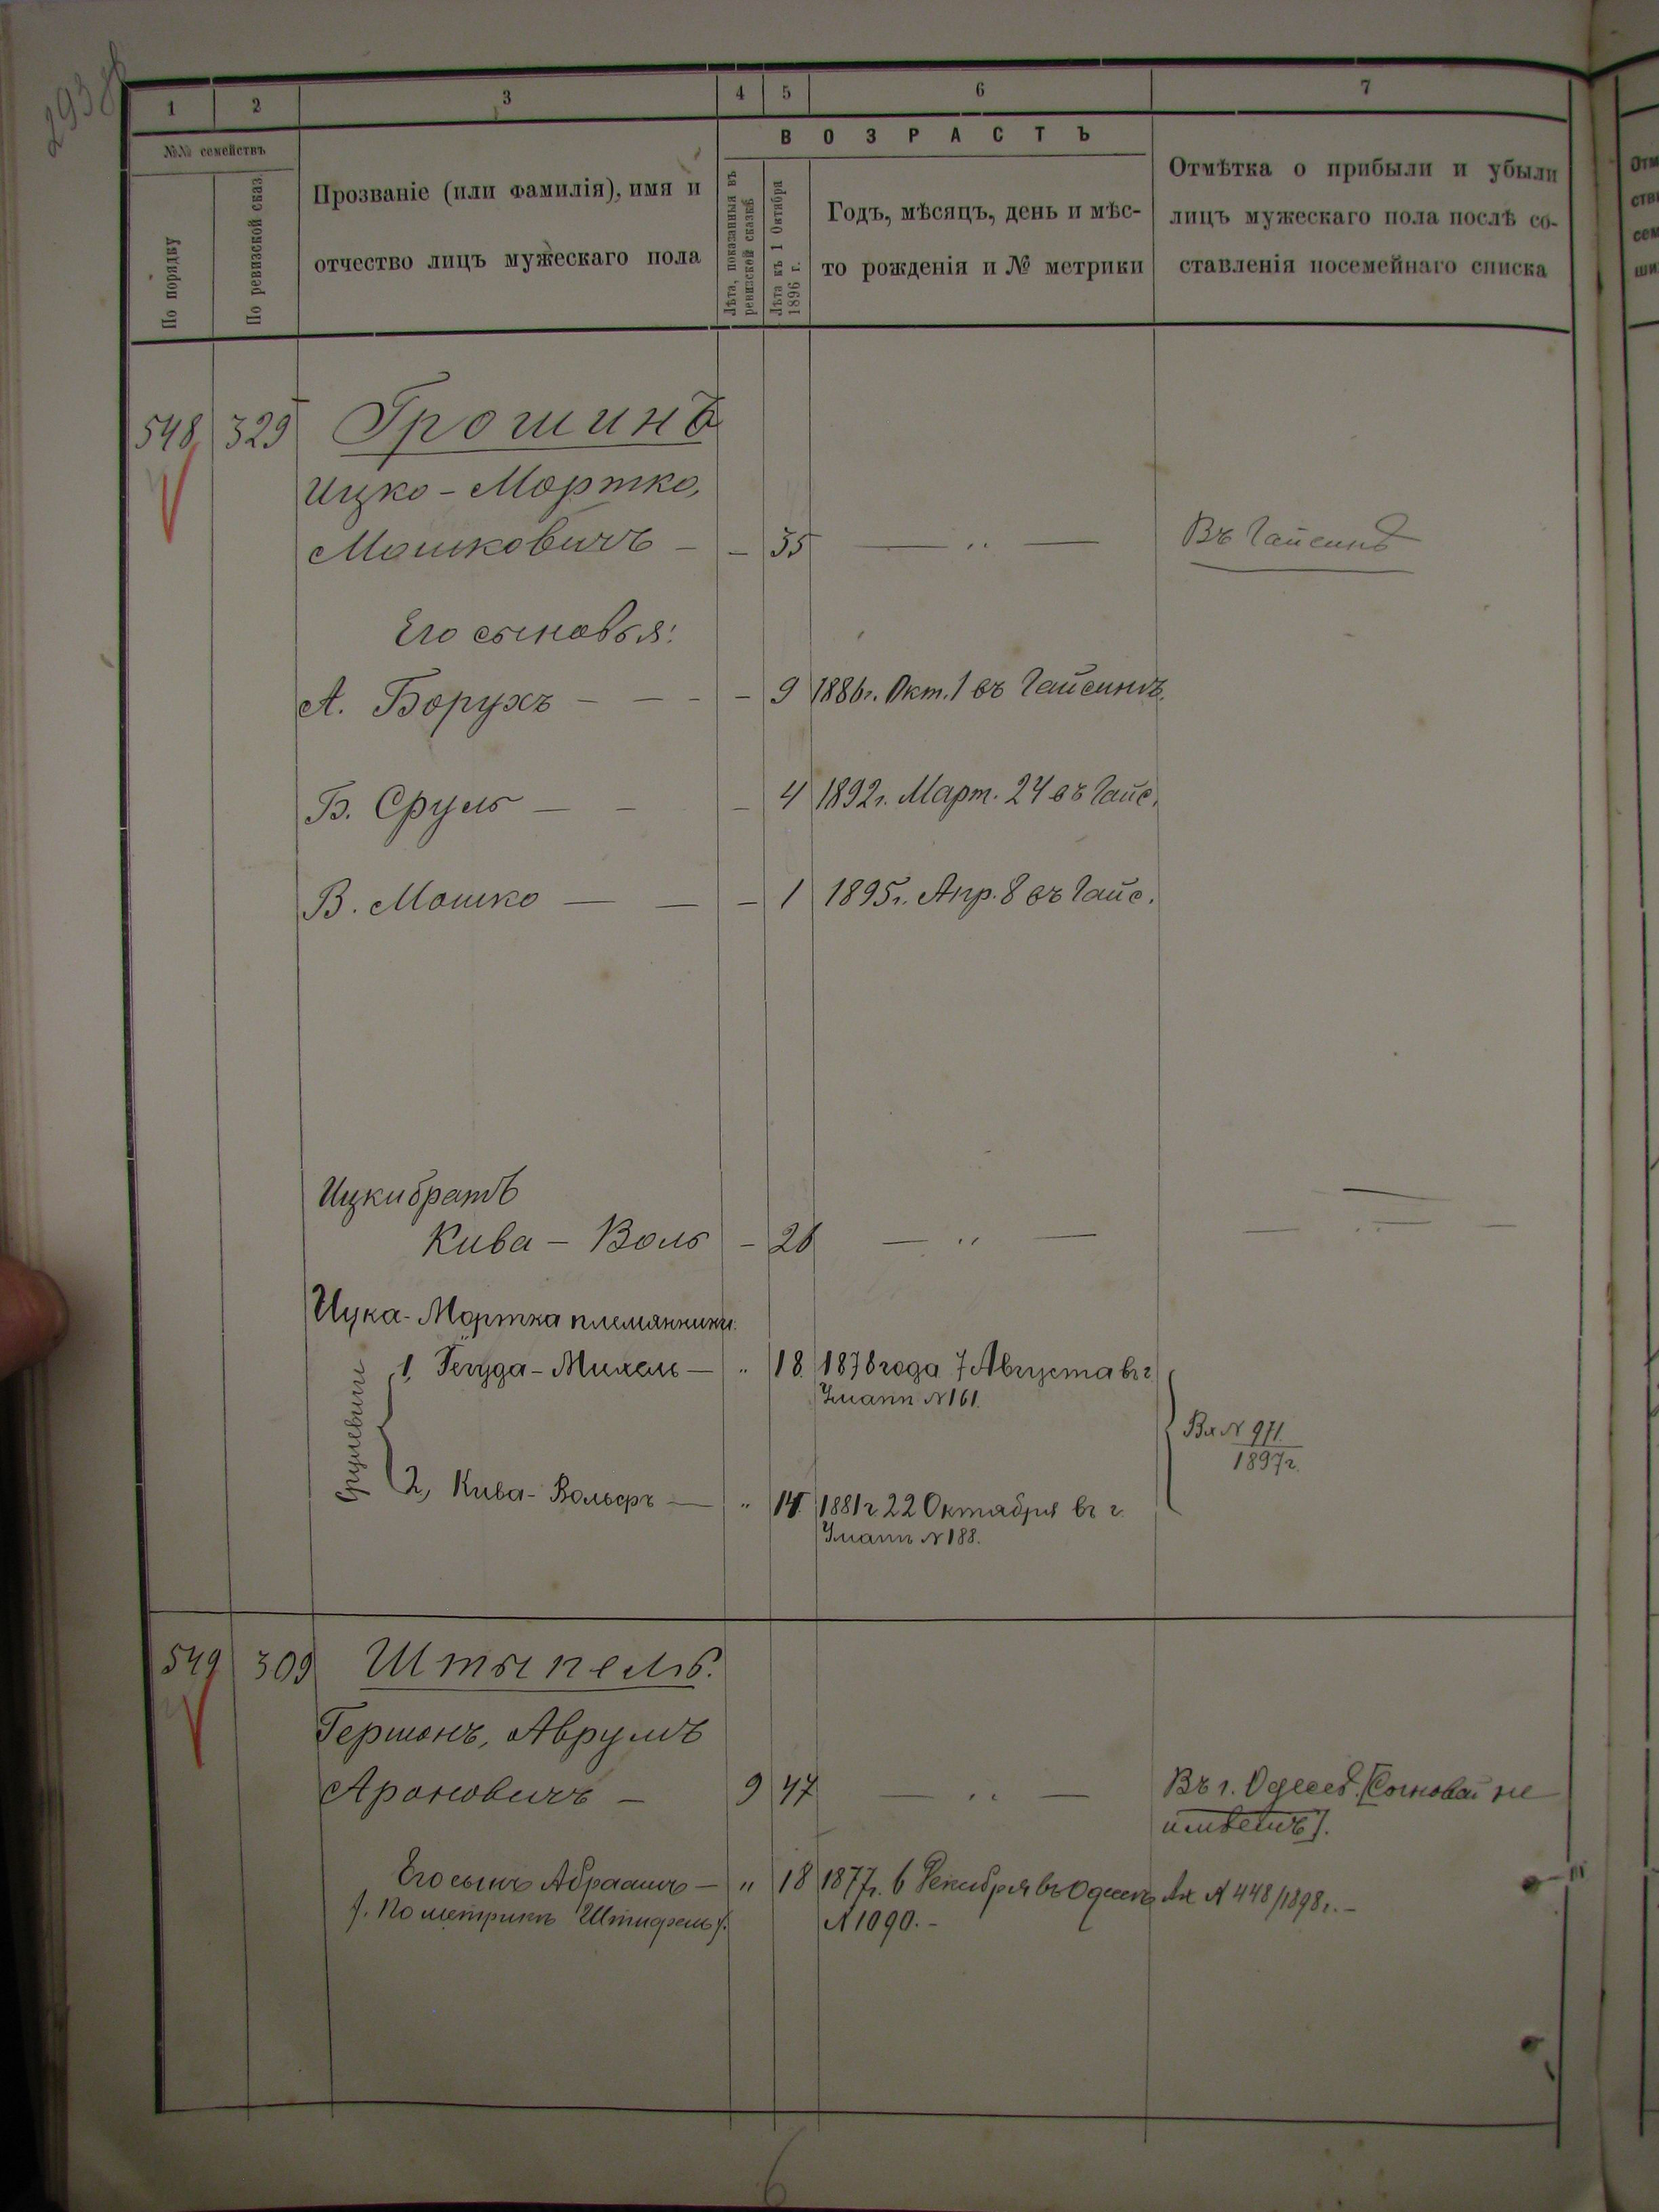 293
1 2 3 4 5 6 7
№№ семействъ
По порядку
По ревизской сказ.
Прозваніе (или фамилія), имя и
отчество лицъ мужескаго пола
ВОЗРАСТЪ
Лѣта, показанныя въ
ревизской сказкѣ
Лѣта къ 1 Октября
1896 г.
Годъ, мѣсяцъ, день и мѣс-
то рожденія и № метрики
Отмѣтка о прибыли и убыли
лицъ мужескаго пола послѣ со-
ставленія посемейнаго списка
548 329 Грошинъ
Ицко-Мортко,
Мошковичъ - - 35 — ,, — Въ Гайсинѣ
Его сыновья:
А. Борухъ - - - - 9 1886г. Окт. 1 въ Гайсинѣ.
Б. Сруль - - - 4 1892г. Март. 24 въ Гайс.
В. Мошко - - - 1 1895г. Апр. 8 въ Гайс.
Ицки братъ
Кива - Воль - 26 — ,, — — ,, —
Ицка-Мортка племянники:
Срулевичи
1, Гегуда-Михель — " 18. 1878 года 7 Августа въ г
Умани №161.
№ 971
1897г.
2, Кива-Вольфъ — " 14. 1881г. 22 Октября въ г.
Умани №188.
549 309 Штыпель.
Гершонъ, Аврумъ
Ароновичъ - 9 47 — ,, — Въ г. Одессѣ. [Сыновей не
имѣетъ].
Его сынъ Абраамъ — " 18 1877г. 6 Декабря въ Одессѣ № 448/1898г. -
/. По метрикѣ Штифель /. №1090. -
6